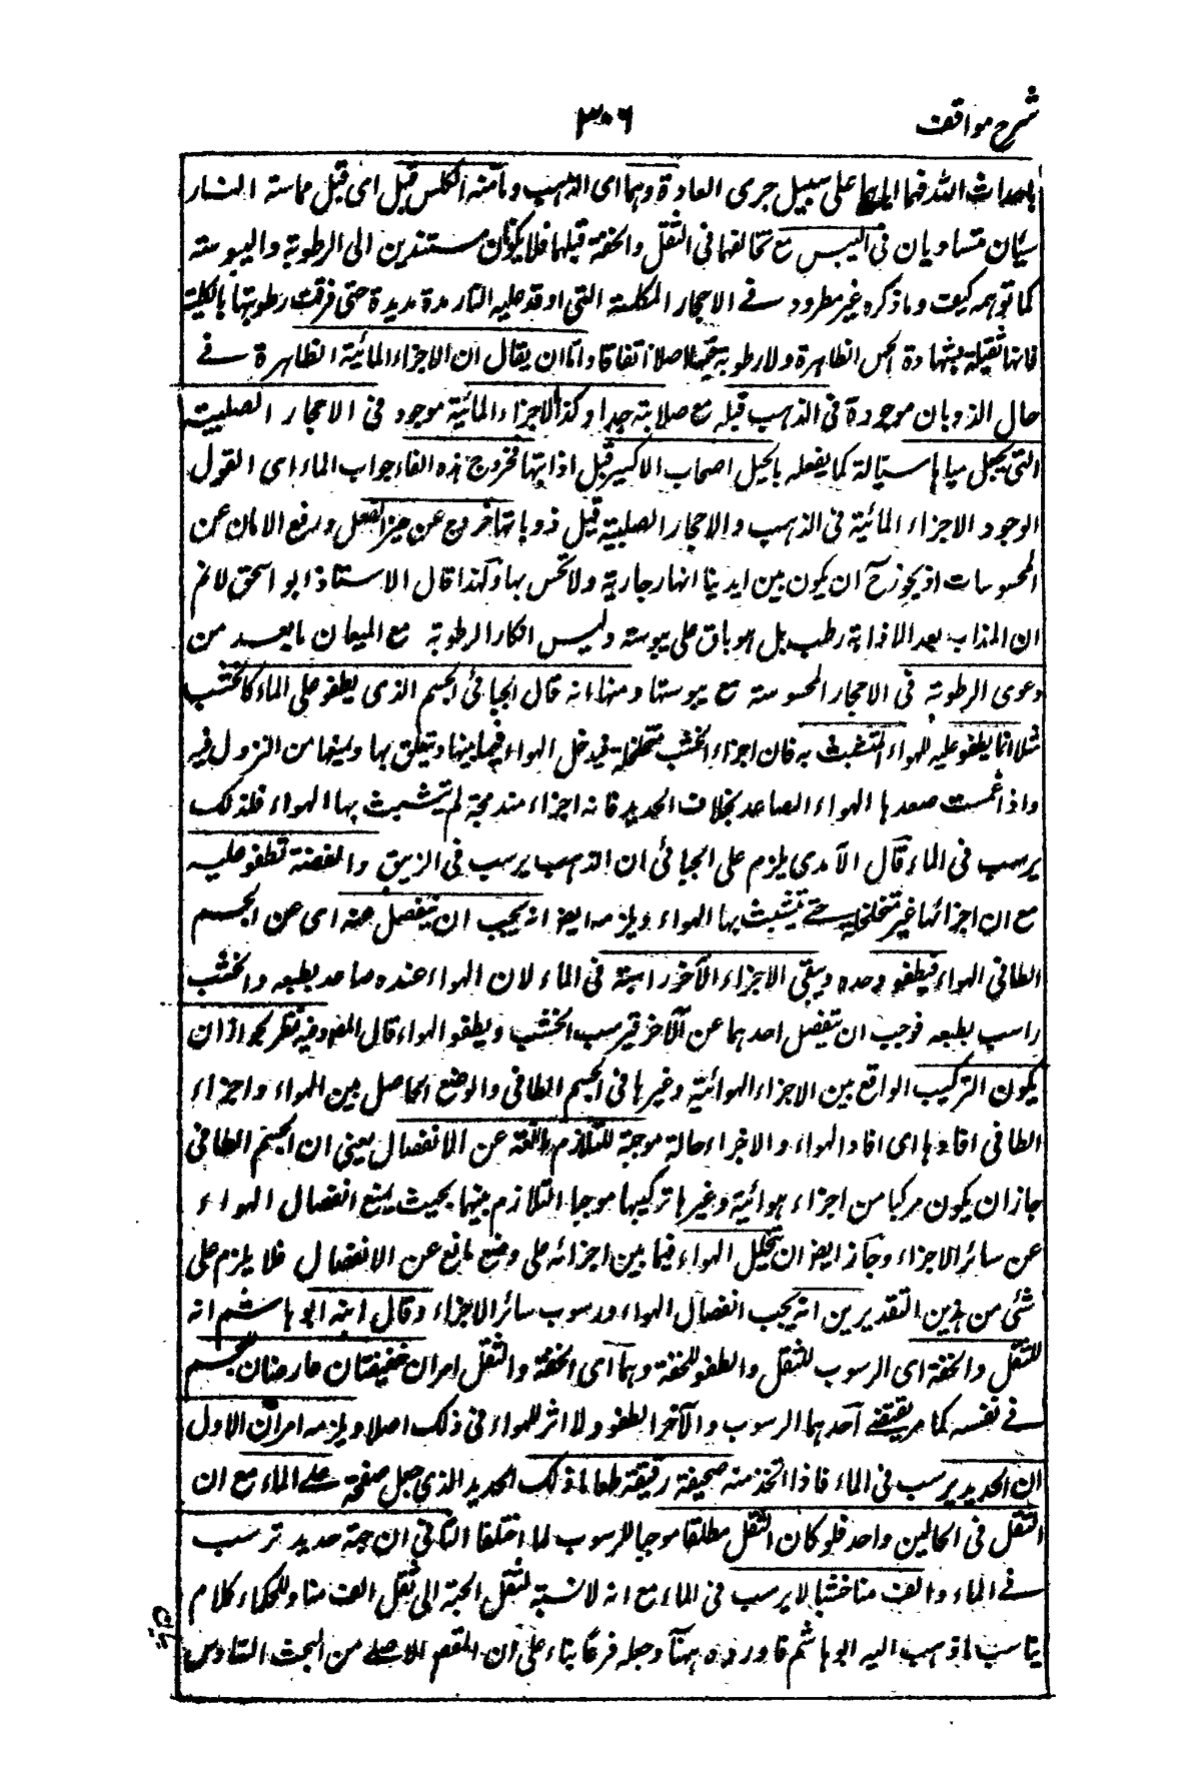 شرح مواقف
٣٠٦
باحداث الله فهما اياها على سبيل جرى العادة وهما اى الذهب وما منه الكلس قبل اى قبل مماسة النار
سيّان متساويان فى اليبس مع تخالفهما فى الثقل والخفة قبلها فلا يكونان مستندين الى الرطوبة واليبوسة
كما توهمه كيف وما ذكره غير مطرود فى الاحجار المكلسة التى اوقد عليه النار مدة مديدة حتى فرقت رطوبتها بالكلية
فانها ثقيلة بشهادة الحس الظاهرة ولا رطوبة فيها اصلا اتفاقا واما ان يقال ان الاجزاء المائية الظاهرة فى
حال الذوبان موجودة فى الذهب قبله مع صلابته جدا وكذا الاجزاء المائية موجود فى الاحجار الصلبية
التى يجعل مياها سيالة كما يفعله بالحيل اصحاب الاكسير قبل اذابتها فخروج هذه الفاء جواب اما اى القول
الوجود الاجزاء المائية فى الذهب والاحجار الصلبية قبل ذوبانها خروج عن حيز العقل ورفع الامان عن
المحسوسات اذ يجوز ح ان يكون بين ايدينا انهار جارية ولا تحس بها وكذا قال الاستاذ ابو اسحق لا نم
ان المذاب بعد الاذابة رطب بل هو باق على يبوسته وليس انكار الرطوبة مع الميعان بابعد من
دعوى الرطوبة فى الاحجار المحسوسة مع يبوستها ومنها انه قال الجبائى الجسم الذى يطفو على الماء كالخشب
مثلا انما يطفو عليه للهواء المتشبث به فان اجزاء الخشب متخلخلة فيدخل الهواء فيما بينها ويتعلق بها ويمنعها من النزول فيه
واذا غمست صعدها الهواء الصاعد بخلاف الحديد فانه اجزاء مندمجة لم يتشبث بها الهواء فلذلك
يرسب فى الماء قال الآمدى يلزم على الجبائى ان الذهب يرسب فى الزيبق والفضة تطفو عليه
مع ان اجزائها غير متخلخلة حتى يتشبث بها الهواء ويلزمه ايضا انه يجب ان ينفصل عنه اى عن الجسم
الطافى الهواء فيطفو وحده ويبقى الاجزاء الآخر راسبة فى الماء لان الهواء عنده صاعد بطبعه والخشب
راسب بطبعه فوجب ان ينفصل احدهما عن الآخر فيرسب الخشب ويطفو الهواء قال المص وفيه نظر لجواز ان
يكون التركيب الواقع بين الاجزاء الهوائية وغيرها فى الجسم الطافى والوضع الحاصل بين الهواء واجزاء
الطافى افادها اى افاد الهواء والاجزاء حالة موجبة للتلازم مانعة عن الانفصال يعنى ان الجسم الطافى
جاز ان يكون مركبا من اجزاء هوائية وغيرها تركيبها موجبا التلازم بينهما بحيث يمنع انفصال الهواء
عن سائر الاجزاء وجاز ايضا ان يتخلل الهواء فيما بين اجزائه على وضع مانع عن الانفصال فلا يلزم على
شئ من هذين التقديرين انه يجب انفصال الهواء ورسوب سائر الاجزاء وقال ابنه ابو هاشم انه
للثقل والخفة اى الرسوب للثقل والطفو للخفة وهما اى الخفة والثقل امران حقيقتان عارضان للجسم
فى نفسه كما مر يقتضى احدهما الرسوب والآخر الطفو ولا اثر للهواء فى ذلك اصلا ويلزمه امران الاول
ان الحديد يرسب فى الماء فاذا اتخذ منه صحيفة رقيقة طفا ذلك الحديد الذى جعل صفحة على الماء مع ان
الثقل فى الحالين واحد فلو كان الثقل مطلقا موجبا للرسوب لما اختلفا الثانى ان حبة حديد ترسب
فى الماء والف منا خشبا لا يرسب فى الماء مع انه لا نسبة لثقل الحبة الى ثقل الف منا وللحكماء كلام
يناسب ما ذهب اليه ابو هاشم فاورده ههنا وجعله فرعا بناء على ان المقصد الاصلے من البحث السادس